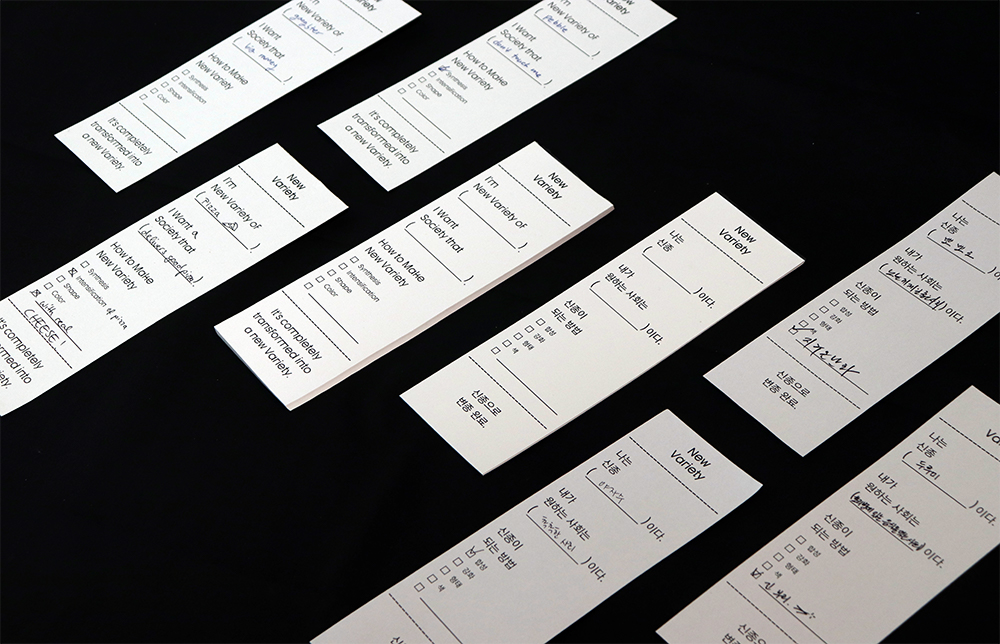 New Variety of
( gangster )
I Want
Society that
( big money )
How to Make
New Variety
□ Synthesis
□ Intensification
□ Shape
□ Color
It's completely
transformed into
a new Variety.
New Variety of
( Pebble )
I Want
Society that
( don't touch me )
How to Make
New Variety
□ Synthesis
□ Intensification
□ Shape
□ Color
It's completely
transformed into
a new Variety.
New
Variety
I'm
New Variety of
( Pizza )
I Want a
Society that
( delivers good pizza )
How to Make
New Variety
□ Synthesis
☒ Intensification of pizza
□ Shape
□ Color
☒ with real
CHEESE!
It's completely
transformed into
a new Variety.
New
Variety
I'm
New Variety of
( )
I Want
Society that
( )
How to Make
New Variety
□ Synthesis
□ Intensification
□ Shape
□ Color
It's completely
transformed into
a new Variety.
New
Variety
나는
신종
( )이다.
내가
원하는 사회는
( )이다.
신종이
되는 방법
□ 합성
□ 강화
□ 형태
□ 색
□
신종으로
변종 완료.
나는
신종
( )이다.
내가
원하는 사회는
( )이다.
신종이
되는 방법
□ 합성
□ 강화
□ 형태
신종으로
변종 완료.
New
Variety
나는
신종
( 야자수 )이다.
내가
원하는 사회는
( )이다.
신종이
되는 방법
☑ 합성
□ 강화
□ 형태
□ 색
□
나는
신종
( 두루미 )이다.
내가
원하는 사회는
( )이다.
신종이
되는 방법
□ 합성
□ 강화
□ 형태
□ 색
☑ 긴 부리.